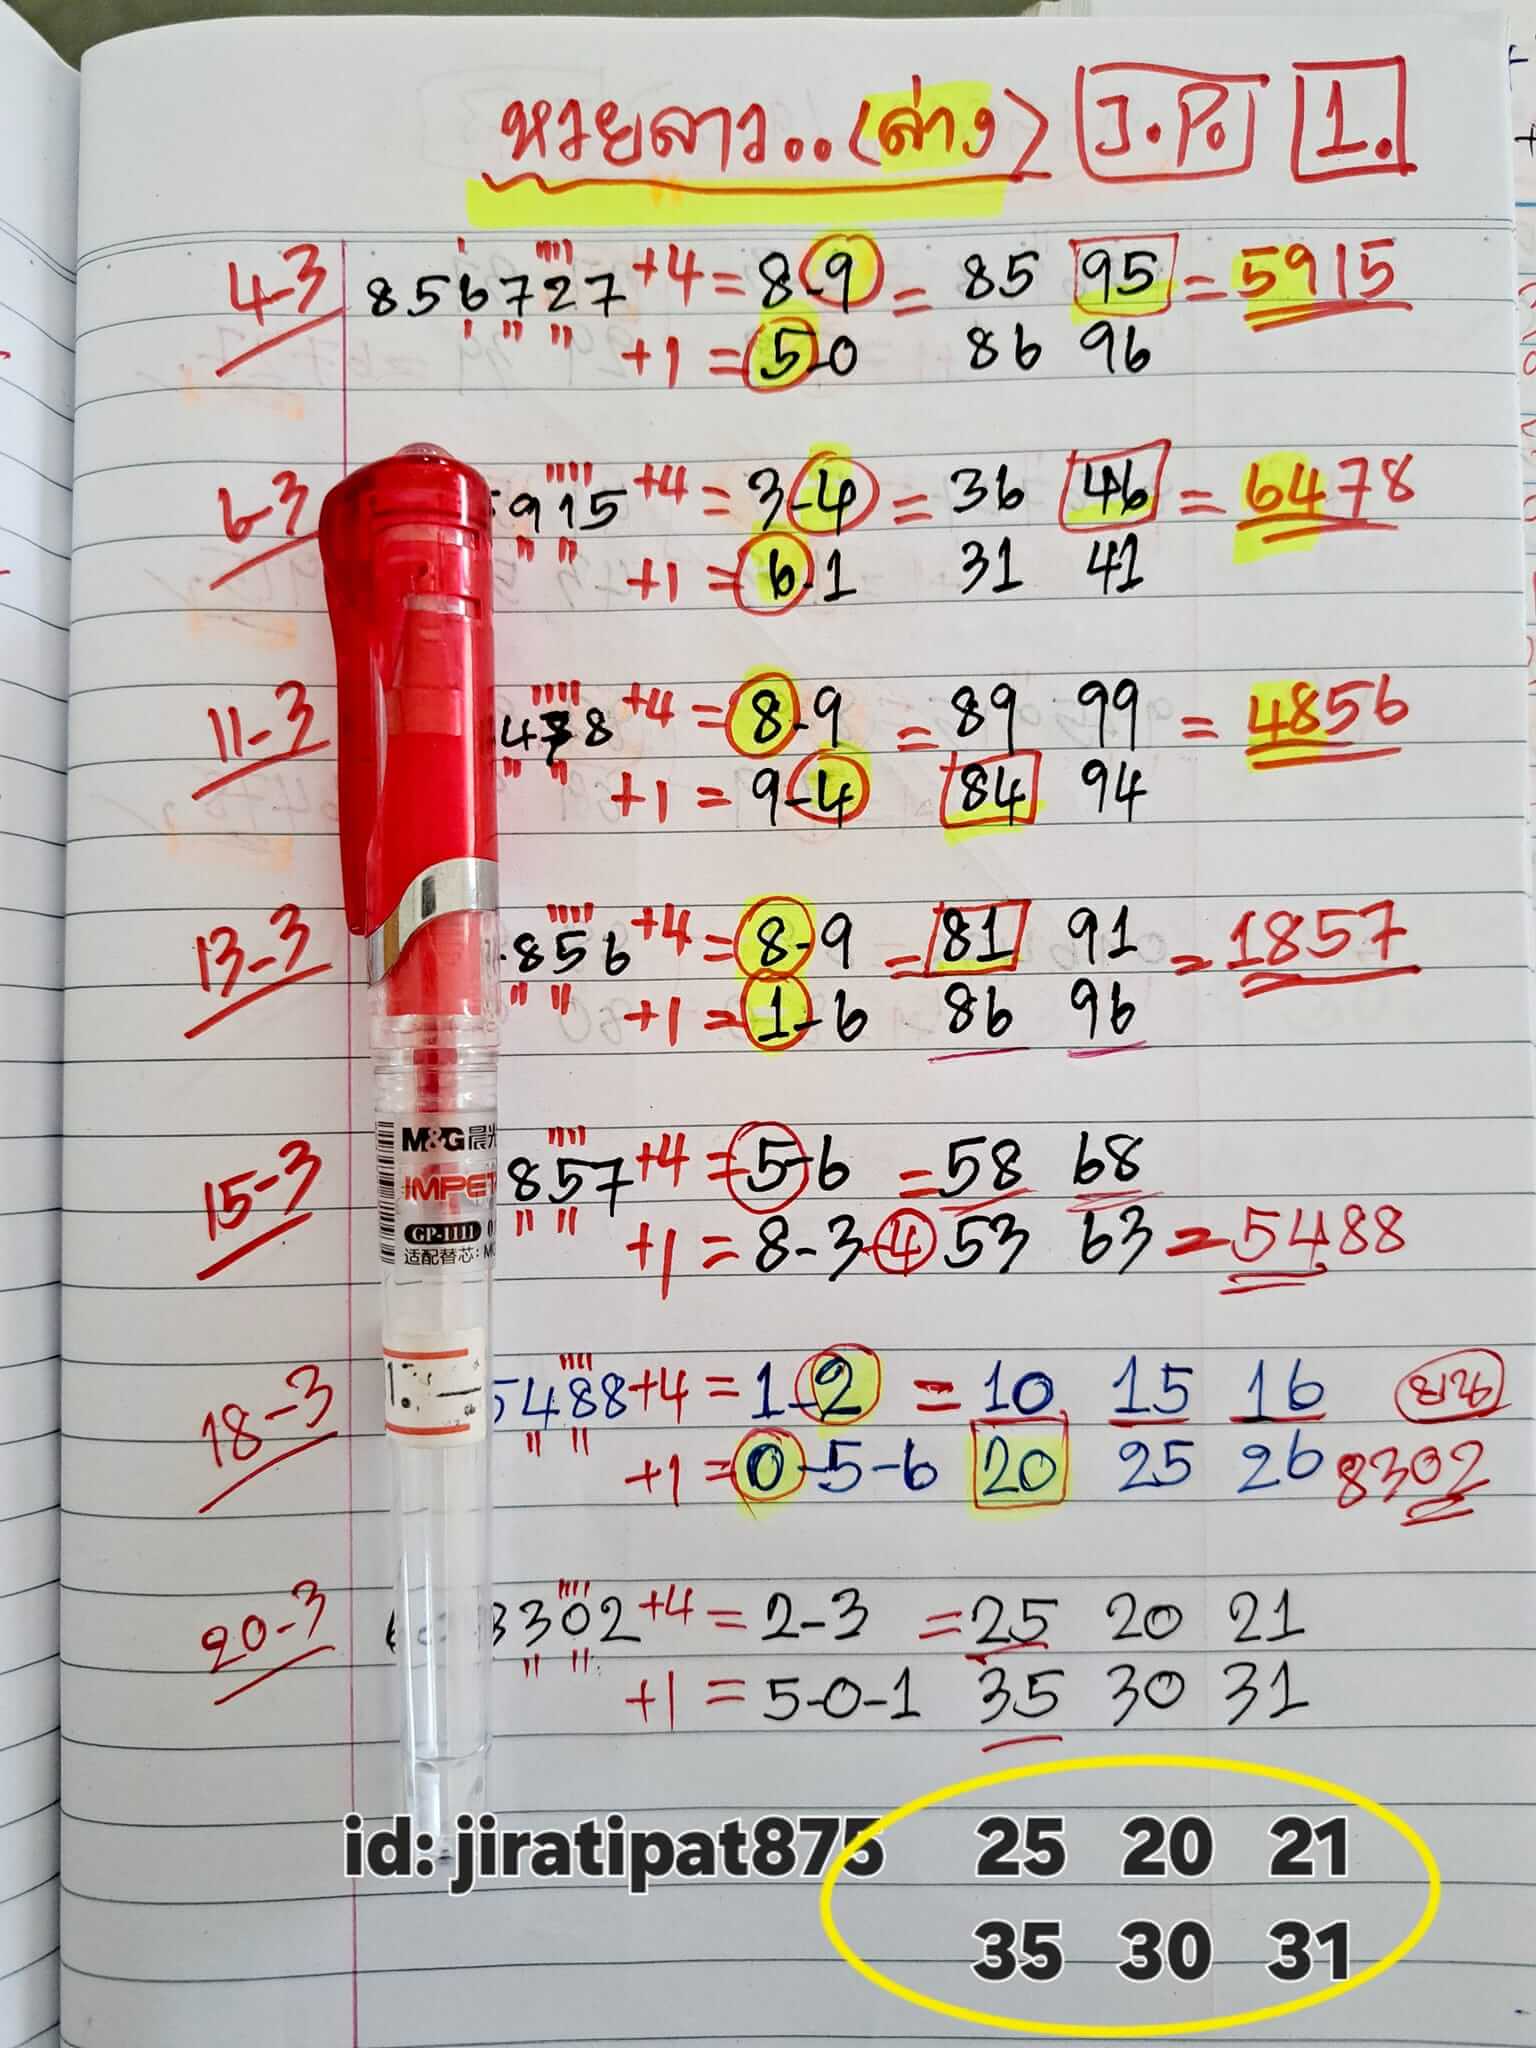 หวยลาว..(ล่าง) J.P. 1.
4-3 856727 +4 = 8-9 = 85 95 = 5915
+1 = 5-0 86 96
6-3 5915 +4 = 3-4 = 36 46 = 6478
+1 = 6-1 31 41
11-3 478 +4 = 8-9 = 89 99 = 4856
+1 = 9-4 84 94
13-3 856 +4 = 8-9 = 81 91 = 1857
+1 = 1-6 86 96
15-3 857 +4 = 5-6 = 58 68
+1 = 8-3-4 53 63 = 5488
18-3 5488 +4 = 1-2 = 10 15 16
+1 = 0-5-6 20 25 26 8302
20-3 3302 +4 = 2-3 = 25 20 21
+1 = 5-0-1 35 30 31
M&G晨光
IMPET
GP-1111
适配替芯:
id: jiratipat875 25 20 21
35 30 31